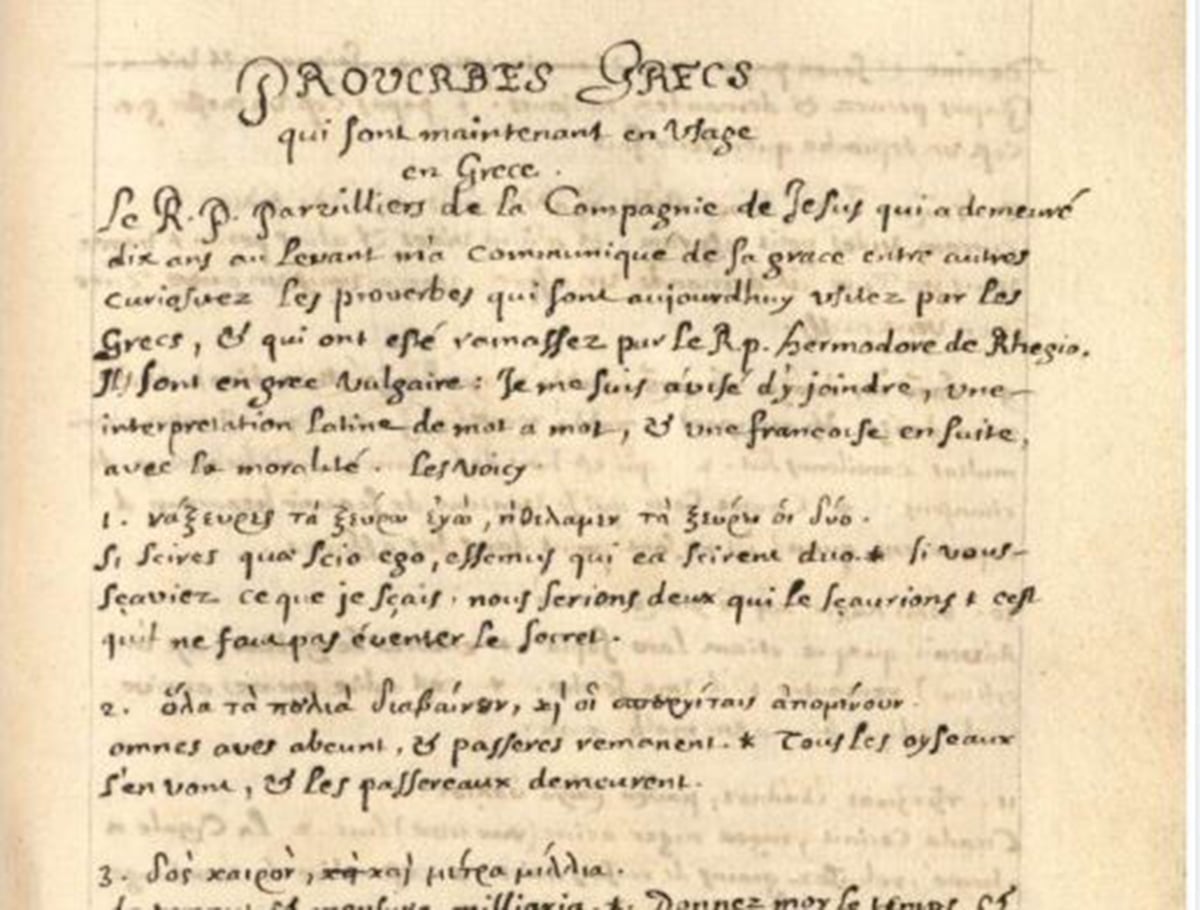 PROUERBES GRECS
qui sont maintenant en Vsage
en Grece.
Le R. P. Parvilliers de la Compagnie de Jesus qui a demeuré
dix ans au Levant m'a communiqué de sa grace entre autres
curiositez les proverbes qui sont aujourdhuy usitez par les
Grecs, & qui ont esté ramassez par le R. p. hermodore de Rhegio.
Ils sont en grec Vulgaire: Je me suis avisé d'y joindre, une
interpretation latine de mot a mot, & une francoise en suite,
avec la moralité. Les Voicy
1. νάξευρες τὰ ξεύρω ἐγὼ, ἠθέλαμεν τὰ ξεύρω ὁι δύο.
Si scires quæ scio ego, essemus qui ea scirent duo. * si vous
sçaviez ce que je sçais, nous serions deux qui le sçaurions + cest
qu'il ne faut pas éventer le secret.
2. ὅλα τὰ πουλιὰ διαβαίνουν, κὶ οἱ σπεργίται ἀπομένουν.
omnes aves abeunt, & passeres remanent. * Tous les oyseaux
s'en vont, & les passereaux demeurent.
3. δοσ̀ καιρὸν, καὶ μέτρα μίλλια.
da tempus et mensura milliaria. * Donnez moy le temps, et